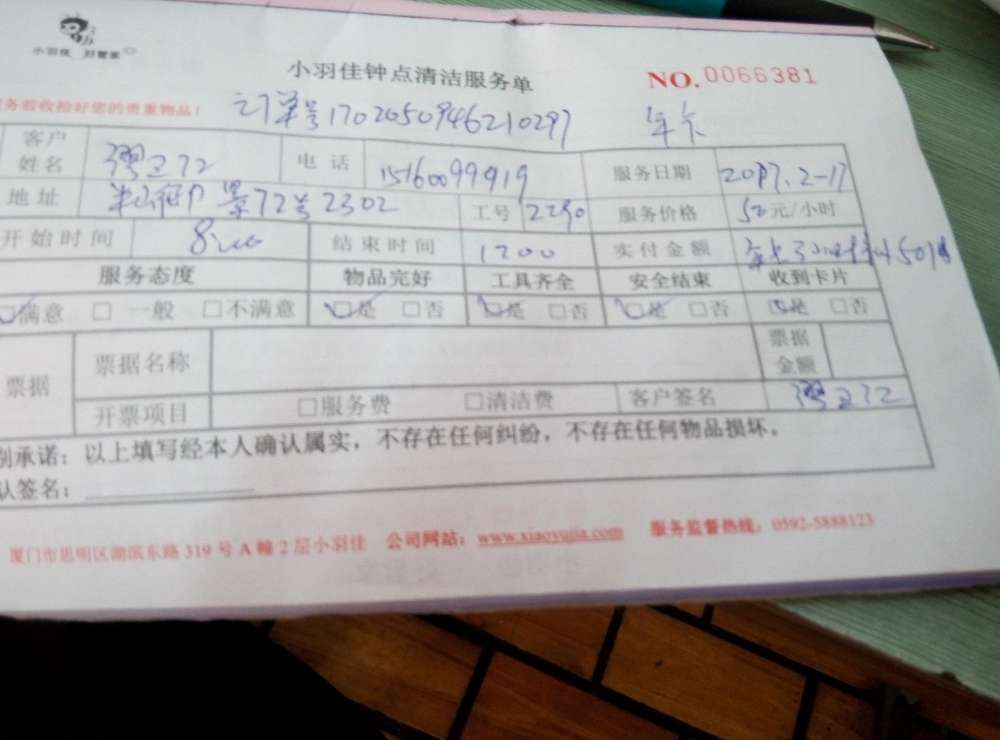 小羽佳 好管家
小羽佳钟点清洁服务单
NO. 0066381
务前收拾好您的贵重物品!
订单号1702050946210297 年卡
客户姓名 电话 15160099919 服务日期 2017.2-17
地址 景72号2302 工号 2290 服务价格 50元/小时
开始时间 8:00 结束时间 1200 实付金额
服务态度 物品完好 工具齐全 安全结束 收到卡片
满意 □ 一般 □不满意 是 □否 是 □否 是 □否 是 □否
票据 票据名称 票据金额
开票项目 □服务费 □清洁费 客户签名
别承诺:以上填写经本人确认属实,不存在任何纠纷,不存在任何物品损坏。
认签名:
厦门市思明区湖滨东路 319 号 A 幢 2 层小羽佳 公司网站:www.xiaoyujia.com 服务监督热线:0592-5888123